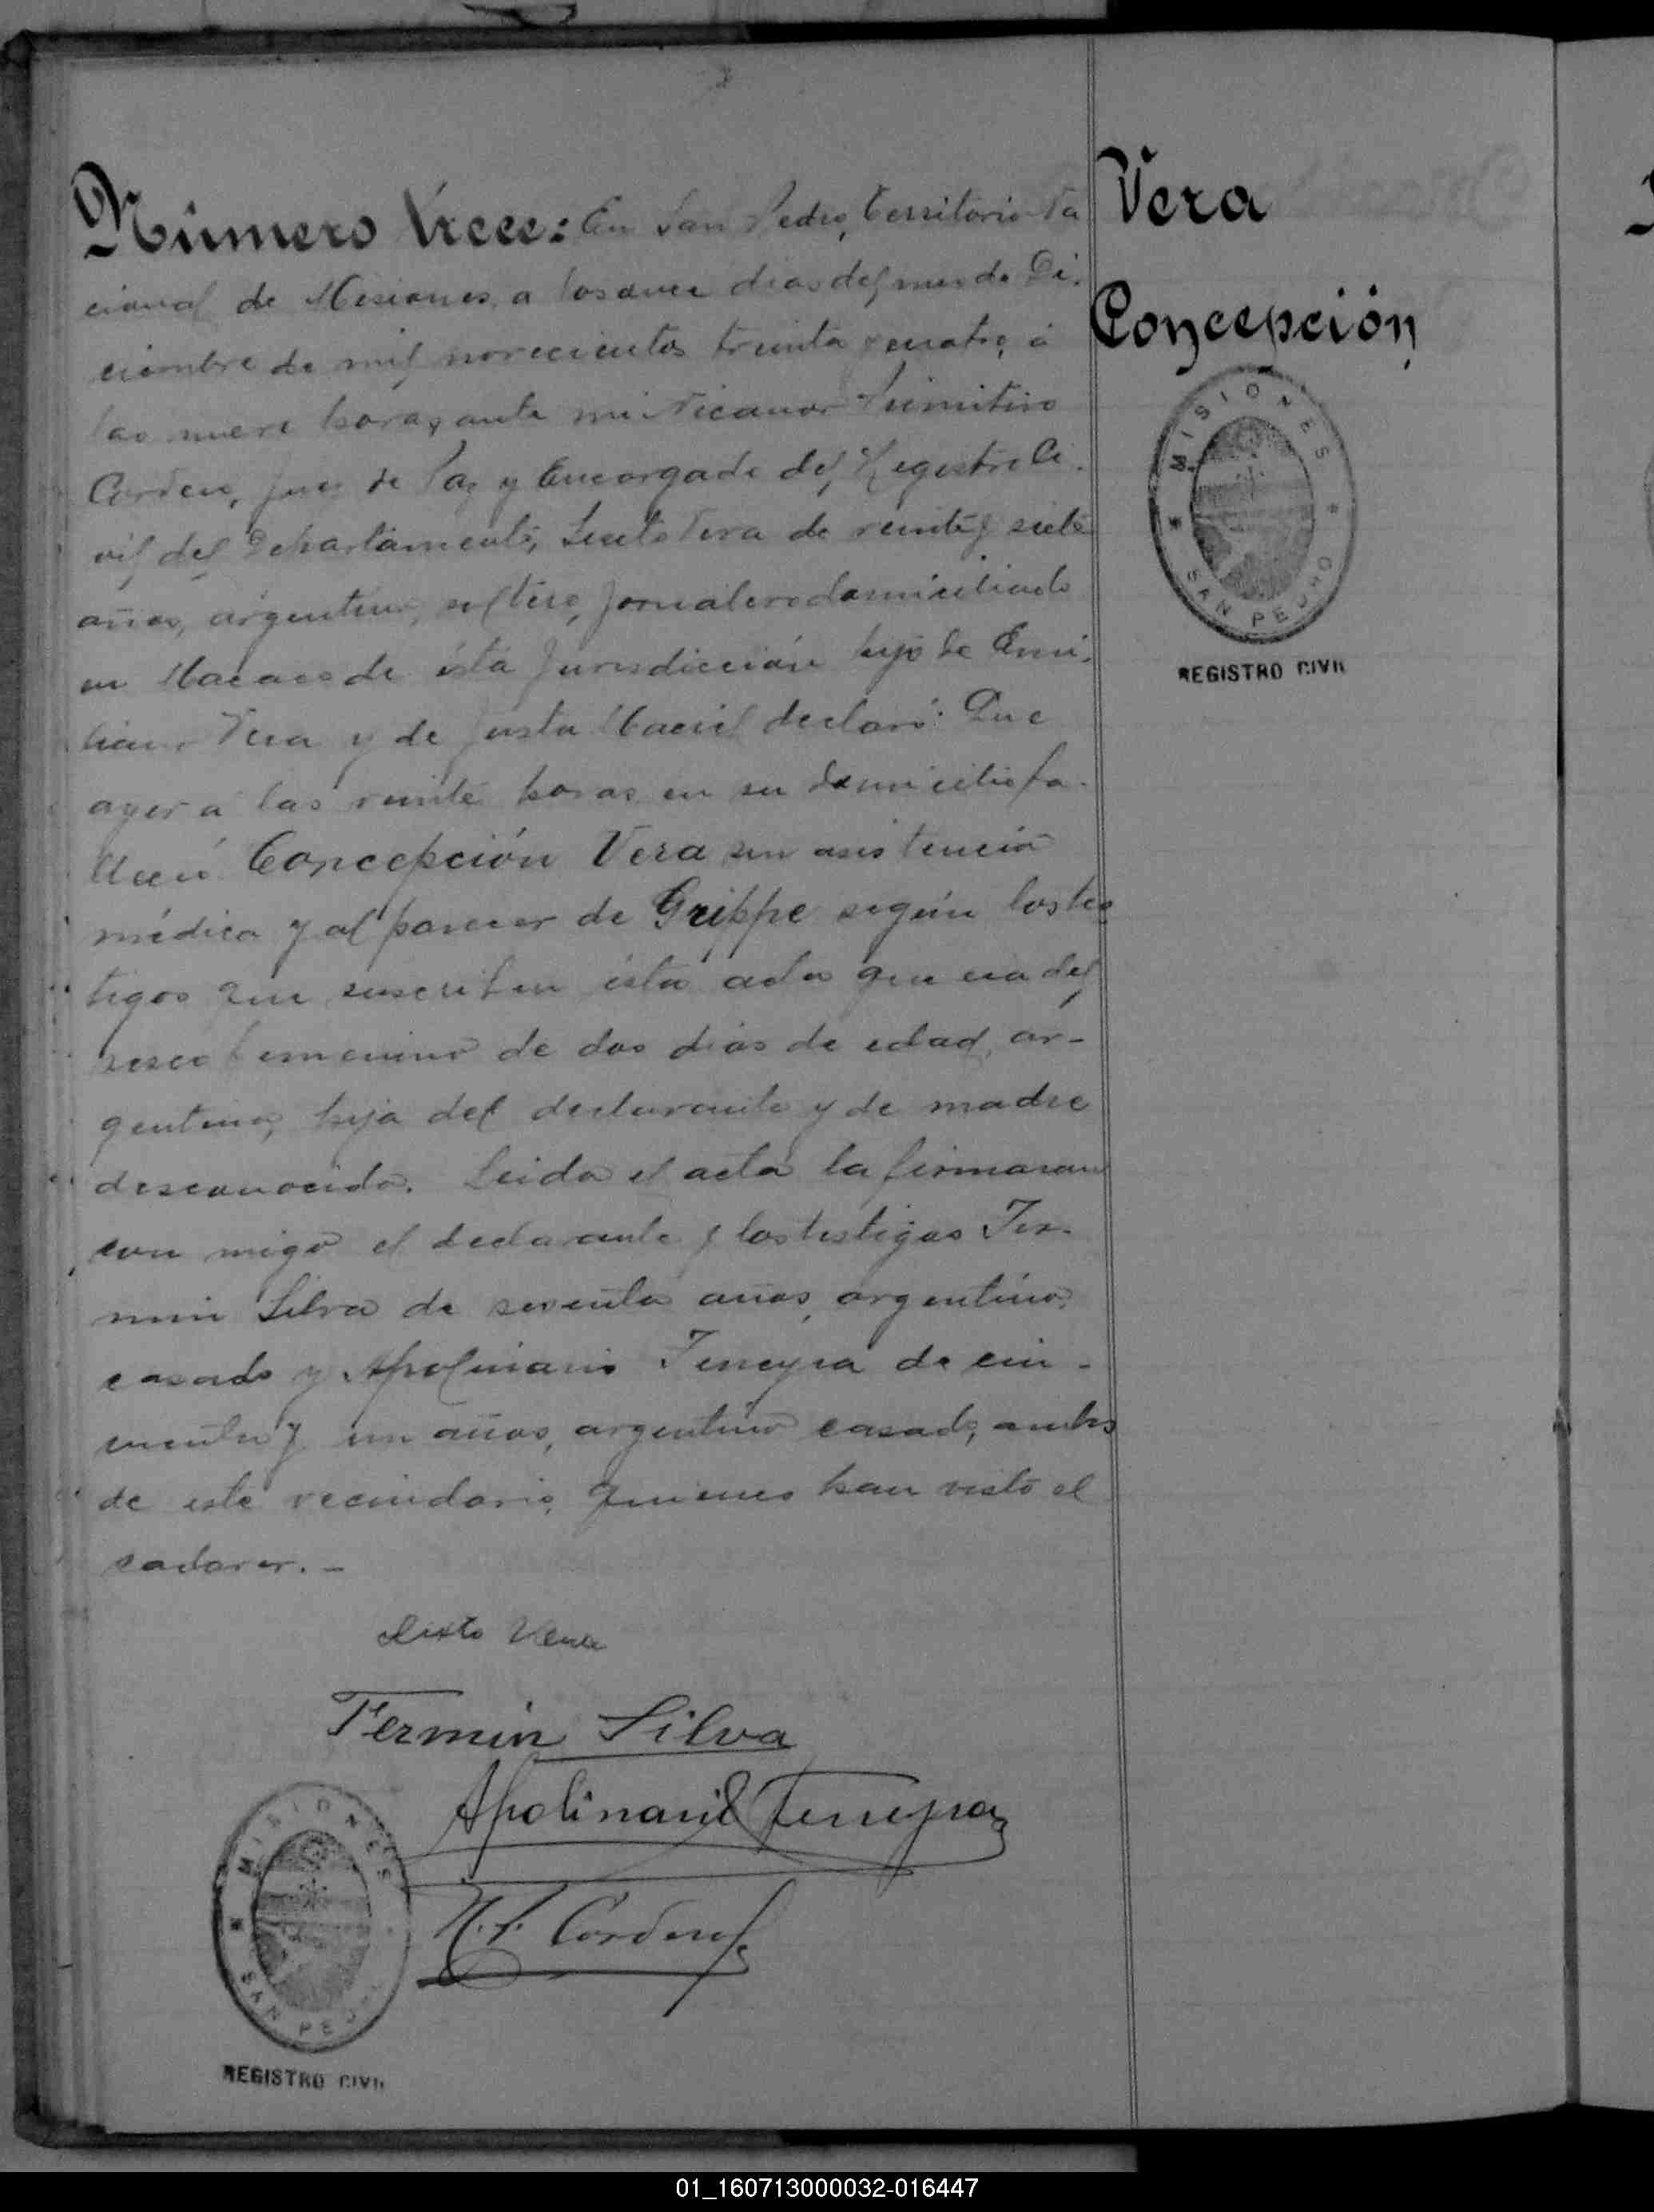 Número Trece: En San Pedro, Territorio Na
cional de Misiones, a los once dias del mes de Di.
ciembre de mil novecientos treinta y cuatro, á
las nueve horas, ante mi Nicanor Primitivo
Cordero, Juez de Paz y Encargado del Registro Ci.
vil del Departamento, Sixto Vera de veinte y siete
años, argentino, soltero, jornalero domiciliado
en Macaco de ésta Jurisdicción hijo de Emi.
liano Vera y de Justa Maciel declaró: Que
ayer á las veinte horas en su domicilio fa.
lleció Concepción Vera sin asistencia
médica y al parecer de Grippe según los tes
tigos que suscriben ésta acta que era del
sexo femenino de dos dias de edad, ar-
gentina, hija del declarante y de madre
desconocida. Leida el acta la firmaran
con migo el declarante y los testigos Fer-
min Silva de sesenta años, argentino,
casado y Apolinario Ferreyra de cin-
cuenta y un años, argentino casado, ambos
de este vecindario, quienes han visto el
cadaver.-
Sixto Vera
Fermin Silva
Apolinario Ferreyra
N. P. Cordero
MISIONES
* SAN PEDRO
REGISTRO CIVIL
Vera
Concepción
MISIONES
* SAN PEDRO *
REGISTRO CIVIL
01_160713000032-016447